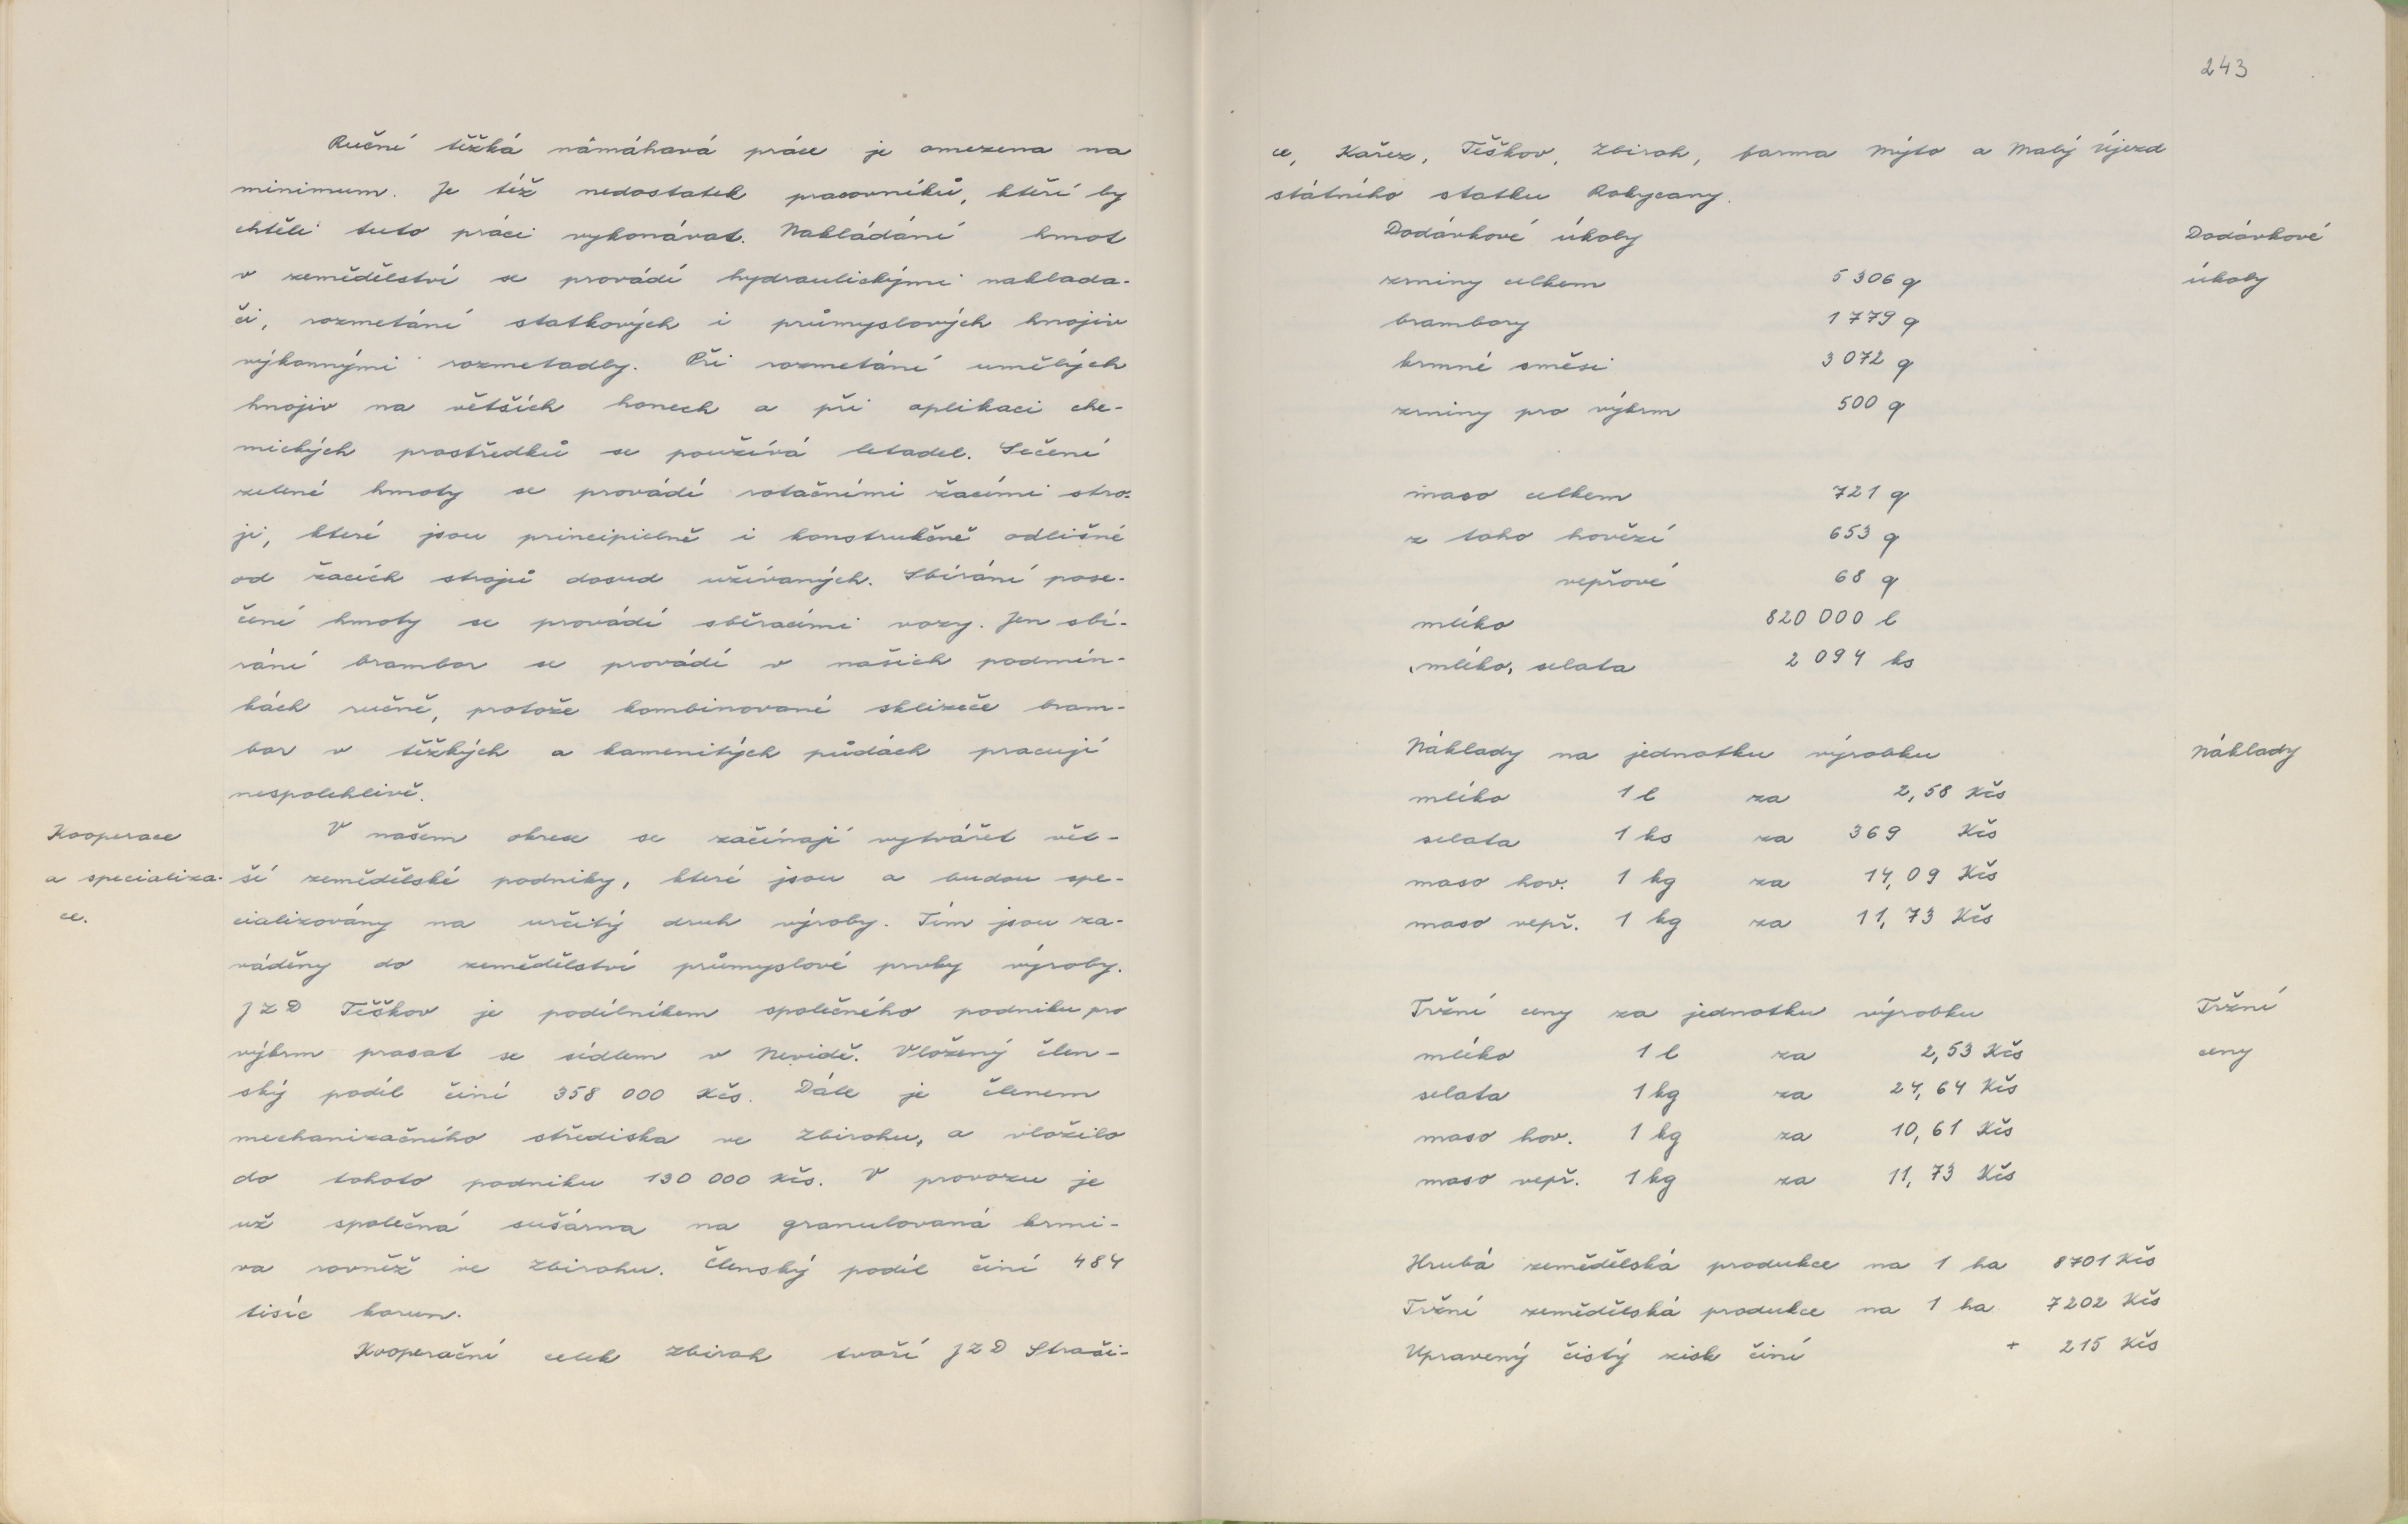 Ruční těžká námáhavá práce je omezena na
minimum. Je též nedostatek pracovníků, kteří by
chtěli tuto práci vykonávat. Nakládání hmot
v zemědělství se provádí hydraulickými naklada-
či, rozmetání statkových i průmyslových hnojiv
výkonnými rozmetadly. Při rozmetání umělých
hnojiv na větších honech a při aplikaci che-
mických prostředků se používá letadel. Sečení
zelené hmoty se provádí rotačními žacími stro-
ji, které jsou principielně i konstrukčně odlišné
od žacích strojů dosud užívaných. Sbírání pose-
čené hmoty se provádí sběracími vozy. Jen sbí-
rání brambor se provádí v našich podmín-
kách ručně, protože kombinované sklizeče bram-
bor v těžkých a kamenitých půdách pracují
nespolehlivě.
Kooperace
a specializa-
ce.
V našem okrese se začínají vytvářet vět-
ší zemědělské podniky, které jsou a budou spe-
cializovány na určitý druh výroby. Tím jsou za-
váděny do zemědělství průmyslové prvky výroby.
JZD Těškov je podílníkem společného podniku pro
výkrm prasat se sídlem v Nevidě. Vložený člen-
ský podíl činí 358 000 Kčs. Dále je členem
mechanizačního střediska ve Zbirohu, a vložilo
do tohoto podniku 130 000 Kčs. V provozu je
už společná sušárna na granulovaná krmi-
va rovněž ve Zbirohu. Členský podíl činí 484
tisíc korun.
Kooperační celek Zbiroh tvoří JZD Straši-
243
ce, Kařez, Těškov, Zbiroh, farma Mýto a Malý Újezd
státního statku Rokycany.
Dodávkové úkoly
Dodávkové
úkoly
zrniny celkem 5 306 q
brambory 1 779 q
krmné směsi 3 072 q
zrniny pro výkrm 500 q
maso celkem 721 q
z toho hovězí 653 q
vepřové 68 q
mléko 820 000 l
(mléko) selata 2 094 ks
Náklady na jednotku výrobku
Náklady
mléko 1 l za 2,58 Kčs
selata 1 ks za 369 Kčs
maso hov. 1 kg za 14,09 Kčs
maso vepř. 1 kg za 11,73 Kčs
Tržní ceny za jednotku výrobku
Tržní
ceny
mléko 1 l za 2,53 Kčs
selata 1 kg za 24,64 Kčs
maso hov. 1 kg za 10,61 Kčs
maso vepř. 1 kg za 11,73 Kčs
Hrubá zemědělská produkce na 1 ha 8701 Kčs
Tržní zemědělská produkce na 1 ha 7202 Kčs
Upravený čistý zisk činí + 215 Kčs